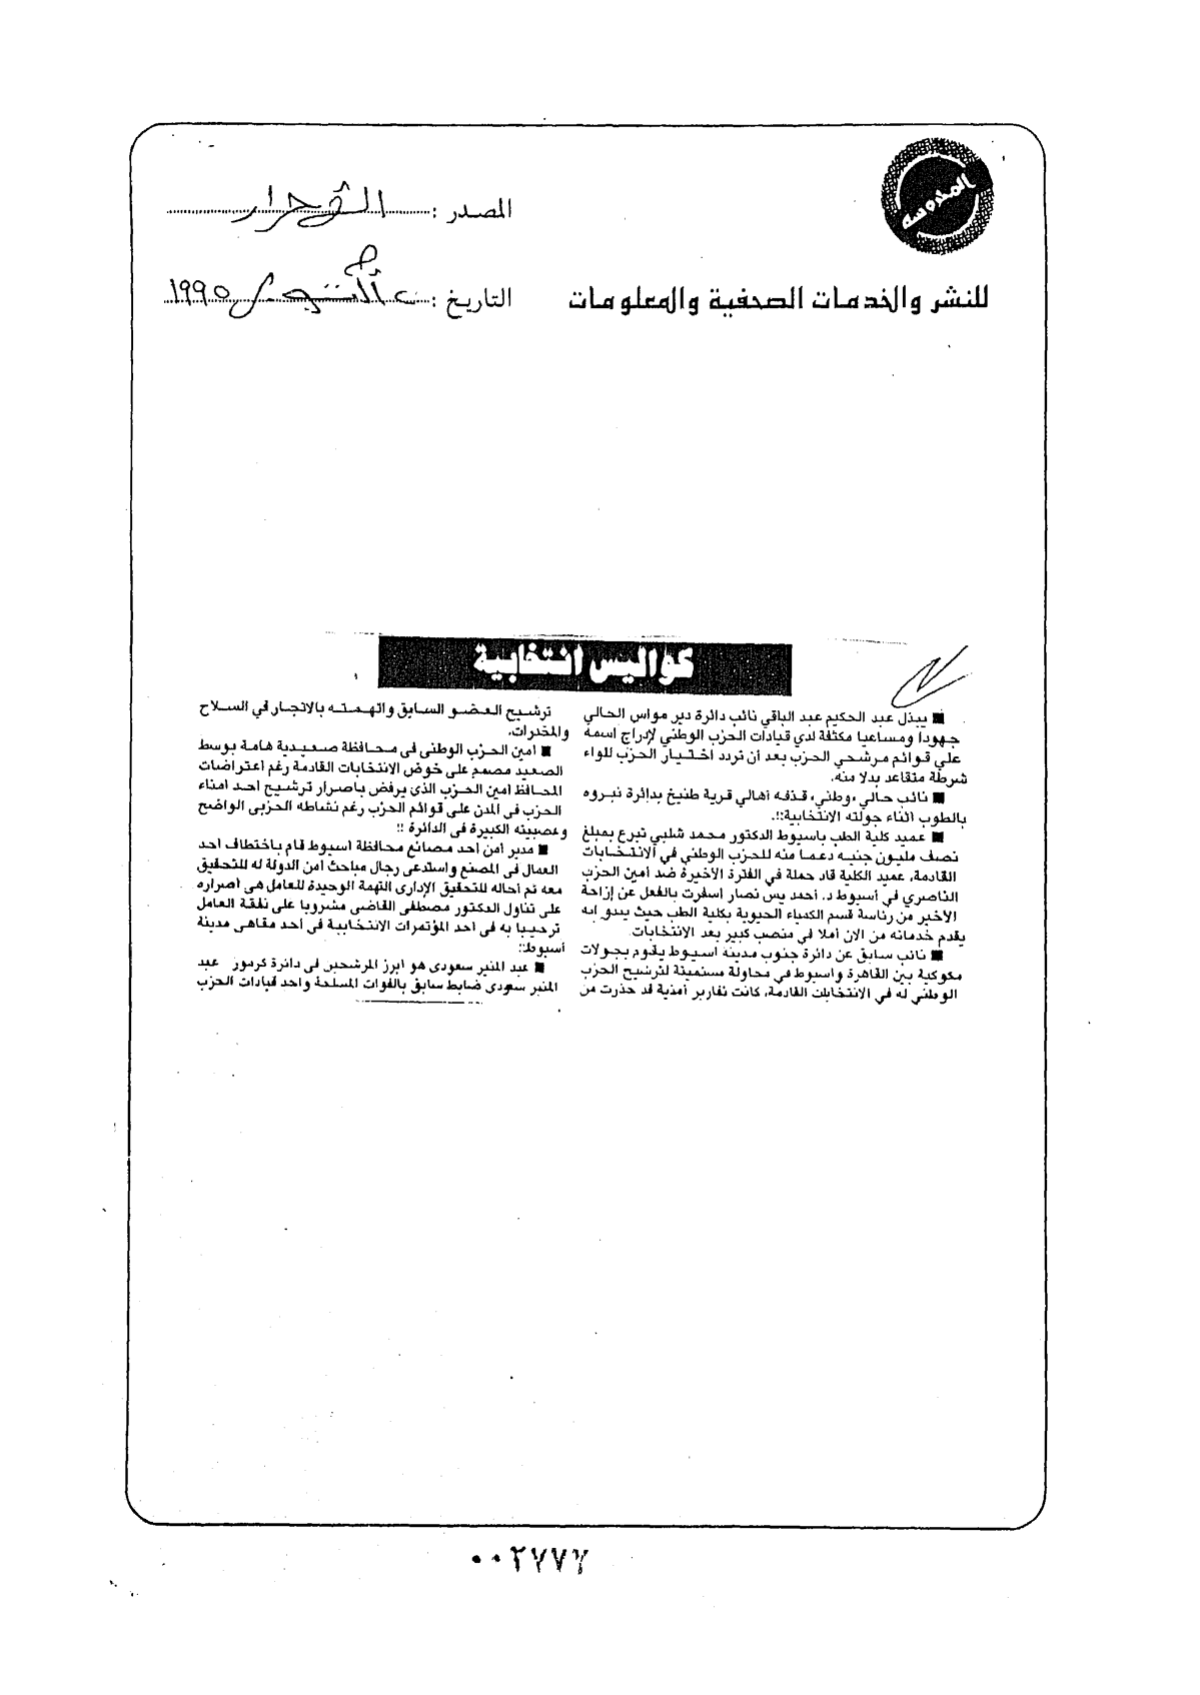 المحروسة
المصدر :
للنشر والخدمات الصحفية والمعلومات
التاريخ : ١٩٩٥
كواليس انتخابية
■ يبذل عبد الحكيم عبد الباقي نائب دائرة دير مواس الحالي
جهودا ومساعيا مكثفة لدي قيادات الحزب الوطني لإدراج اسمه
علي قوائم مرشحي الحزب بعد أن تردد اختيار الحزب للواء
شرطة متقاعد بدلا منه.
■ نائب حالي «وطني» قذفه أهالي قرية طنيخ بدائرة نبروه
بالطوب اثناء جولته الانتخابية!!.
■ عميد كلية الطب باسيوط الدكتور محمد شلبي تبرع بمبلغ
نصف مليون جنيه دعما منه للحزب الوطني في الانتخابات
القادمة، عميد الكلية قاد حملة في الفترة الأخيرة ضد أمين الحزب
الناصري في أسيوط د. أحمد يس نصار اسفرت بالفعل عن إزاحة
الاخير من رئاسة قسم الكمياء الحيوية بكلية الطب حيث يبدو انه
يقدم خدماته من الان أملا في منصب كبير بعد الانتخابات
■ نائب سابق عن دائرة جنوب مدينة اسيوط يقوم بجولات
مكوكية بين القاهرة واسيوط في محاولة مستميتة لترشيح الحزب
الوطني له في الانتخابات القادمة، كانت تقارير أمنية قد حذرت من
ترشيح العضو السابق واتهمته بالاتجار في السلاح
والمخدرات.
■ امين الحزب الوطنى فى محافظة صعيدية هامة بوسط
الصعيد مصمم على خوض الانتخابات القادمة رغم اعتراضات
المحافظ امين الحزب الذى يرفض باصرار ترشيح احد امناء
الحزب فى المدن على قوائم الحزب رغم نشاطه الحزبى الواضح
وعصبيته الكبيرة فى الدائرة !!
■ مدير أمن احد مصانع محافظة اسيوط قام باختطاف احد
العمال فى المصنع واستدعى رجال مباحث امن الدولة له للتحقيق
معه تم احاله للتحقيق الإدارى التهمة الوحيدة للعامل هى اصراره
على تناول الدكتور مصطفى القاضى مشروبا على نفقة العامل
ترحيبا به فى احد المؤتمرات الانتخابية فى احد مقاهى مدينة
أسيوط!!
■ عبد المنير سعودى هو ابرز المرشحين فى دائرة كرموز عبد
المنير سعودى ضابط سابق بالقوات المسلحة واحد قيادات الحزب
٠٠٢٧٧٧